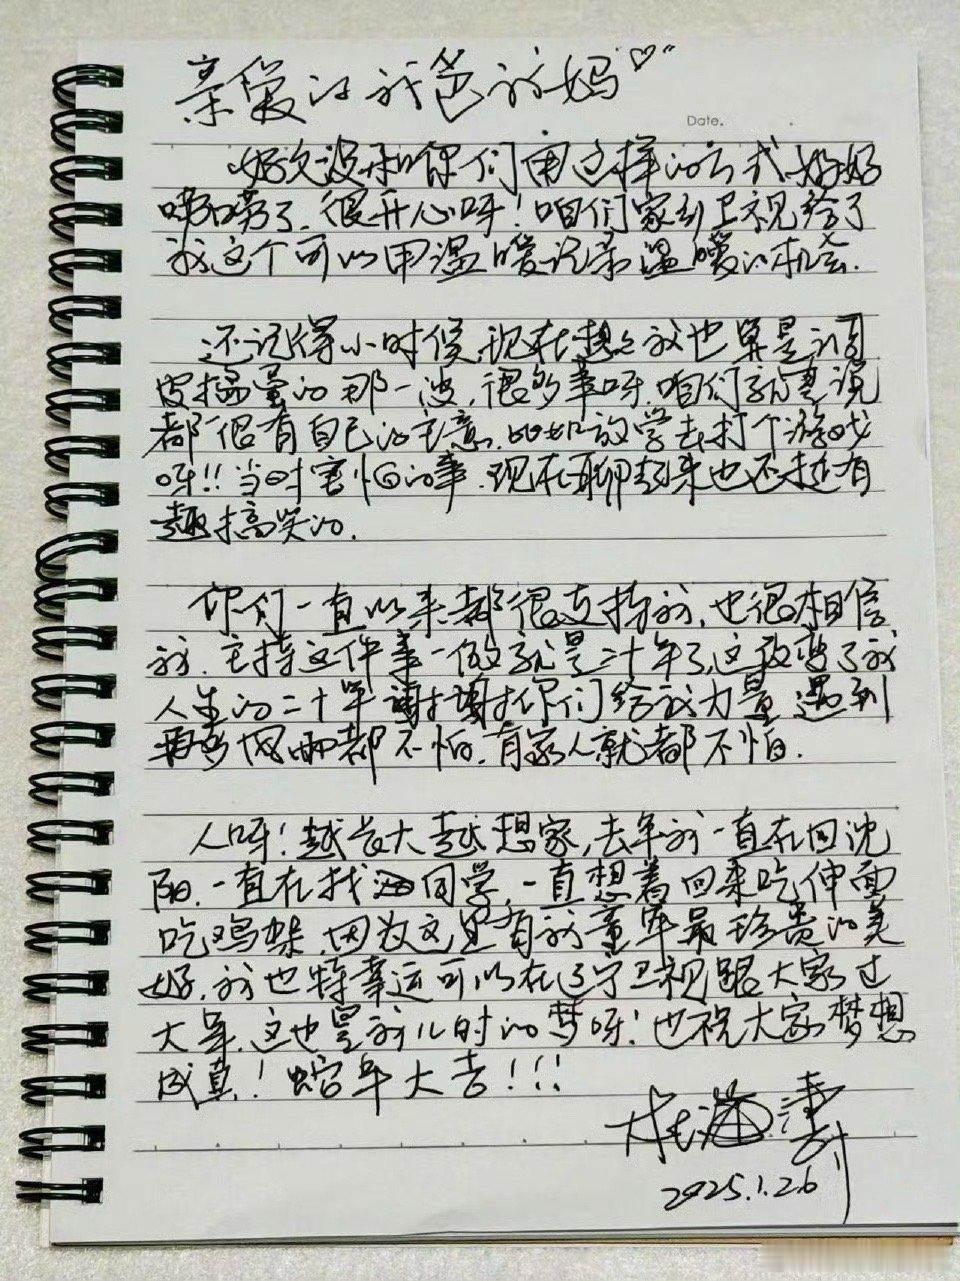 亲爱的我爸我妈♡
Date.
好久没和你们用这样的方式好好
唠唠了，很开心呀！咱们家到卫视给了
我这个可以用温暖记录温暖的机会.
还记得小时候，现在想想我也算是调
皮捣蛋的那一波，很多事呀，咱们就是说
都很有自己的主意，比如放学去打个游戏
呀!!当时害怕的事，现在聊起来也还挺有
趣搞笑的.
你们一直以来都很支持我，也很相信
我，主持这件事一做就是二十年了，这改变了我
人生的二十年谢谢你们给我力量 遇到
再多困难都不怕，有家人就都不怕.
人呀！越长大越想家，去年我一直在回沈
阳，一直在找同学，一直想着回来吃伸面
吃鸡架，因为这里有我童年最珍贵的美
好，我也特幸运可以在辽宁卫视跟大家过
大年，这也是我儿时的梦呀！也祝大家梦想
成真！蛇年大吉!!!
杜海涛
2025.1.26